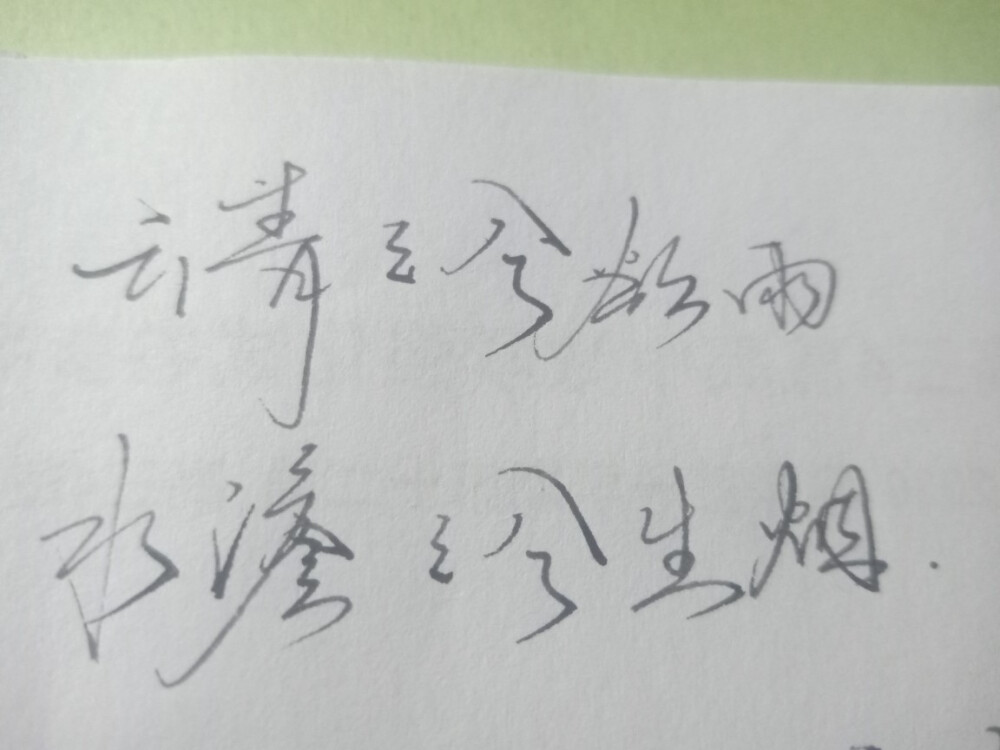 云青青兮欲雨
水澹澹兮生烟.